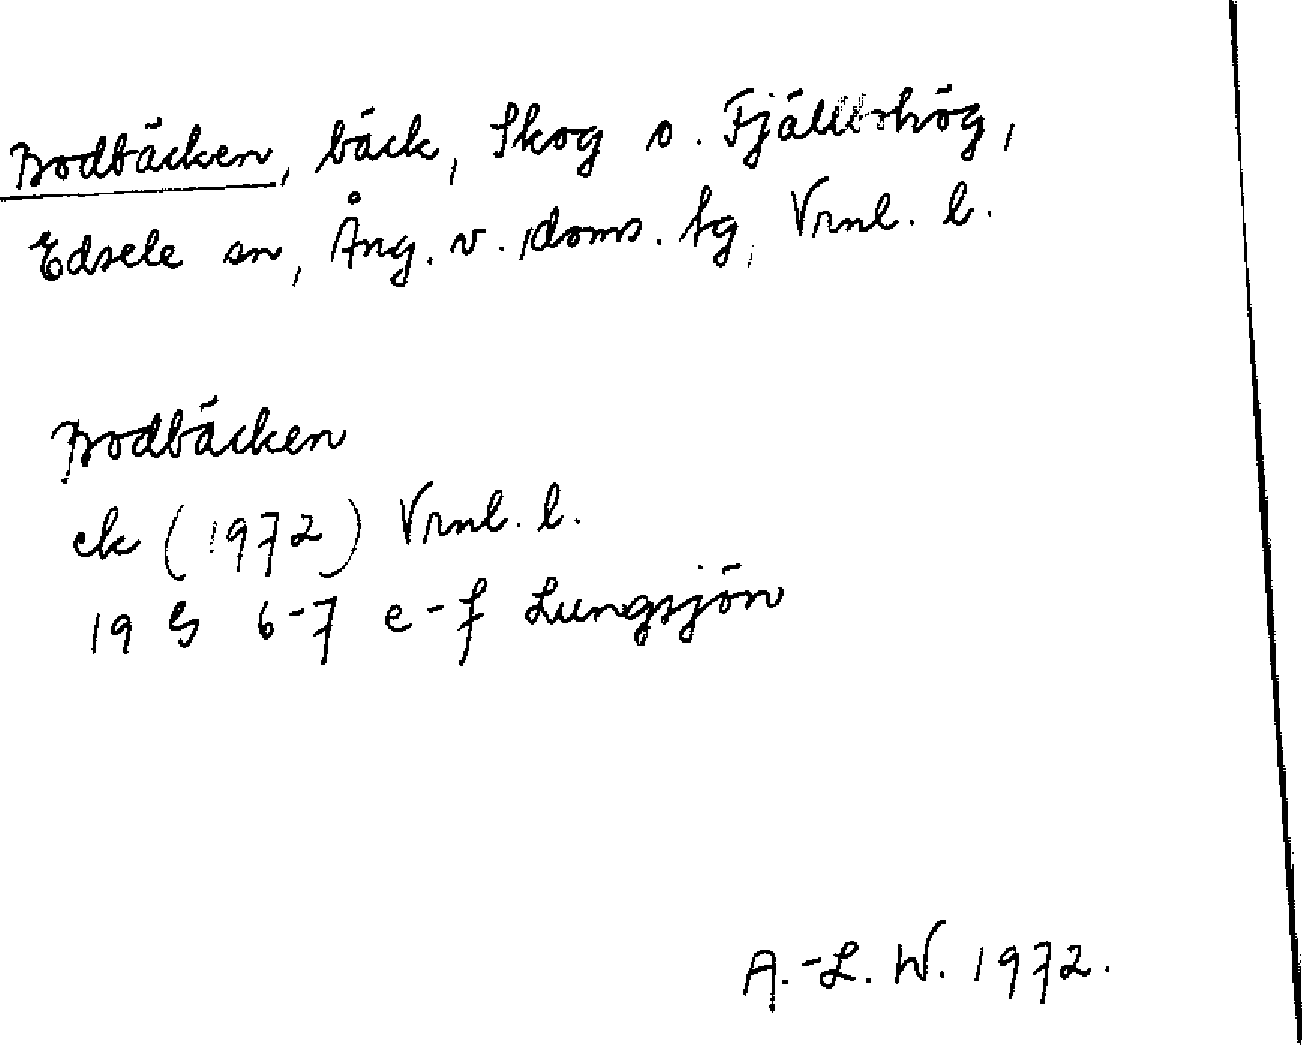 Bodbäcken, bäck, Skog o. Fjällbohög,
Edsele sn, Ång. v. doms. tg, Vrnl. l.
Bodbäcken
ek (1972) Vrnl. l.
19 G 6-7 e-f Lungsjön
A.-L. W. 1972.